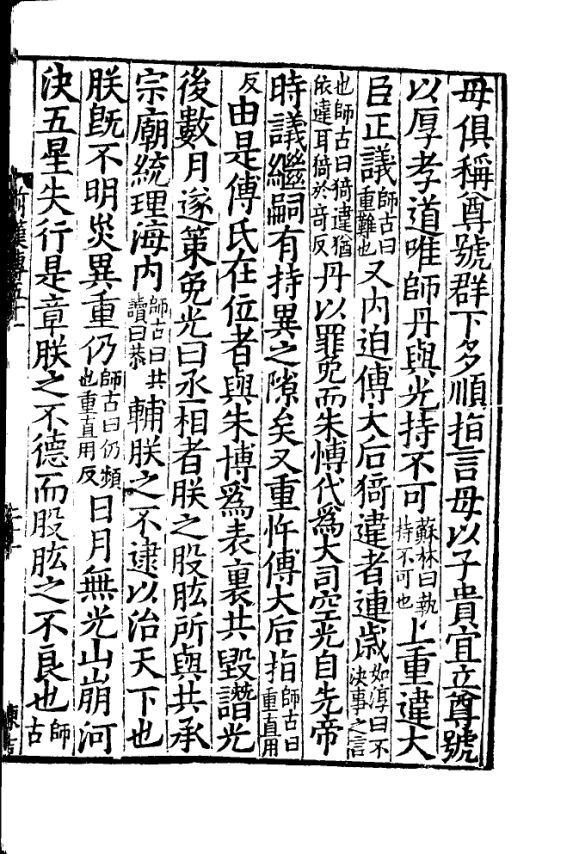 母俱稱尊號群下多順指言母以子貴宜立尊號
以厚孝道唯師丹與光持不可蘇林曰執持不可也上重違大
臣正議師古曰重難也又内迫傅大后猗違者連歲如淳曰不決事之言
也師古曰猗違猶依違耳猗於奇反丹以罪免而朱博代爲大司空光自先帝
時議繼嗣有持異之隙矣又重忤傅大后指師古曰重直用
反由是傅氏在位者與朱博爲表裏共毀譖光
後數月遂策免光曰丞相者朕之股肱所與共承
宗廟統理海内師古曰共讀曰恭輔朕之不逮以治天下也
朕旣不明災異重仍師古曰仍頻也重直用反日月無光山崩河
決五星失行是章朕之不德而股肱之不良也師古
前漢傳五十一